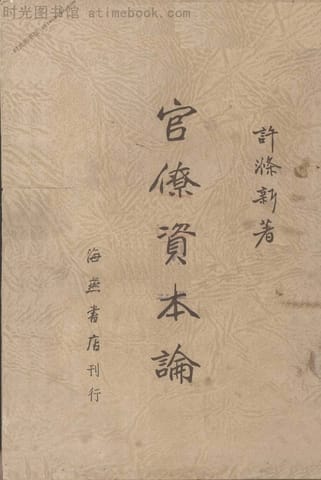 时光图书馆 atimebook.com
許滌新著
官僚資本論
海燕書店刊行